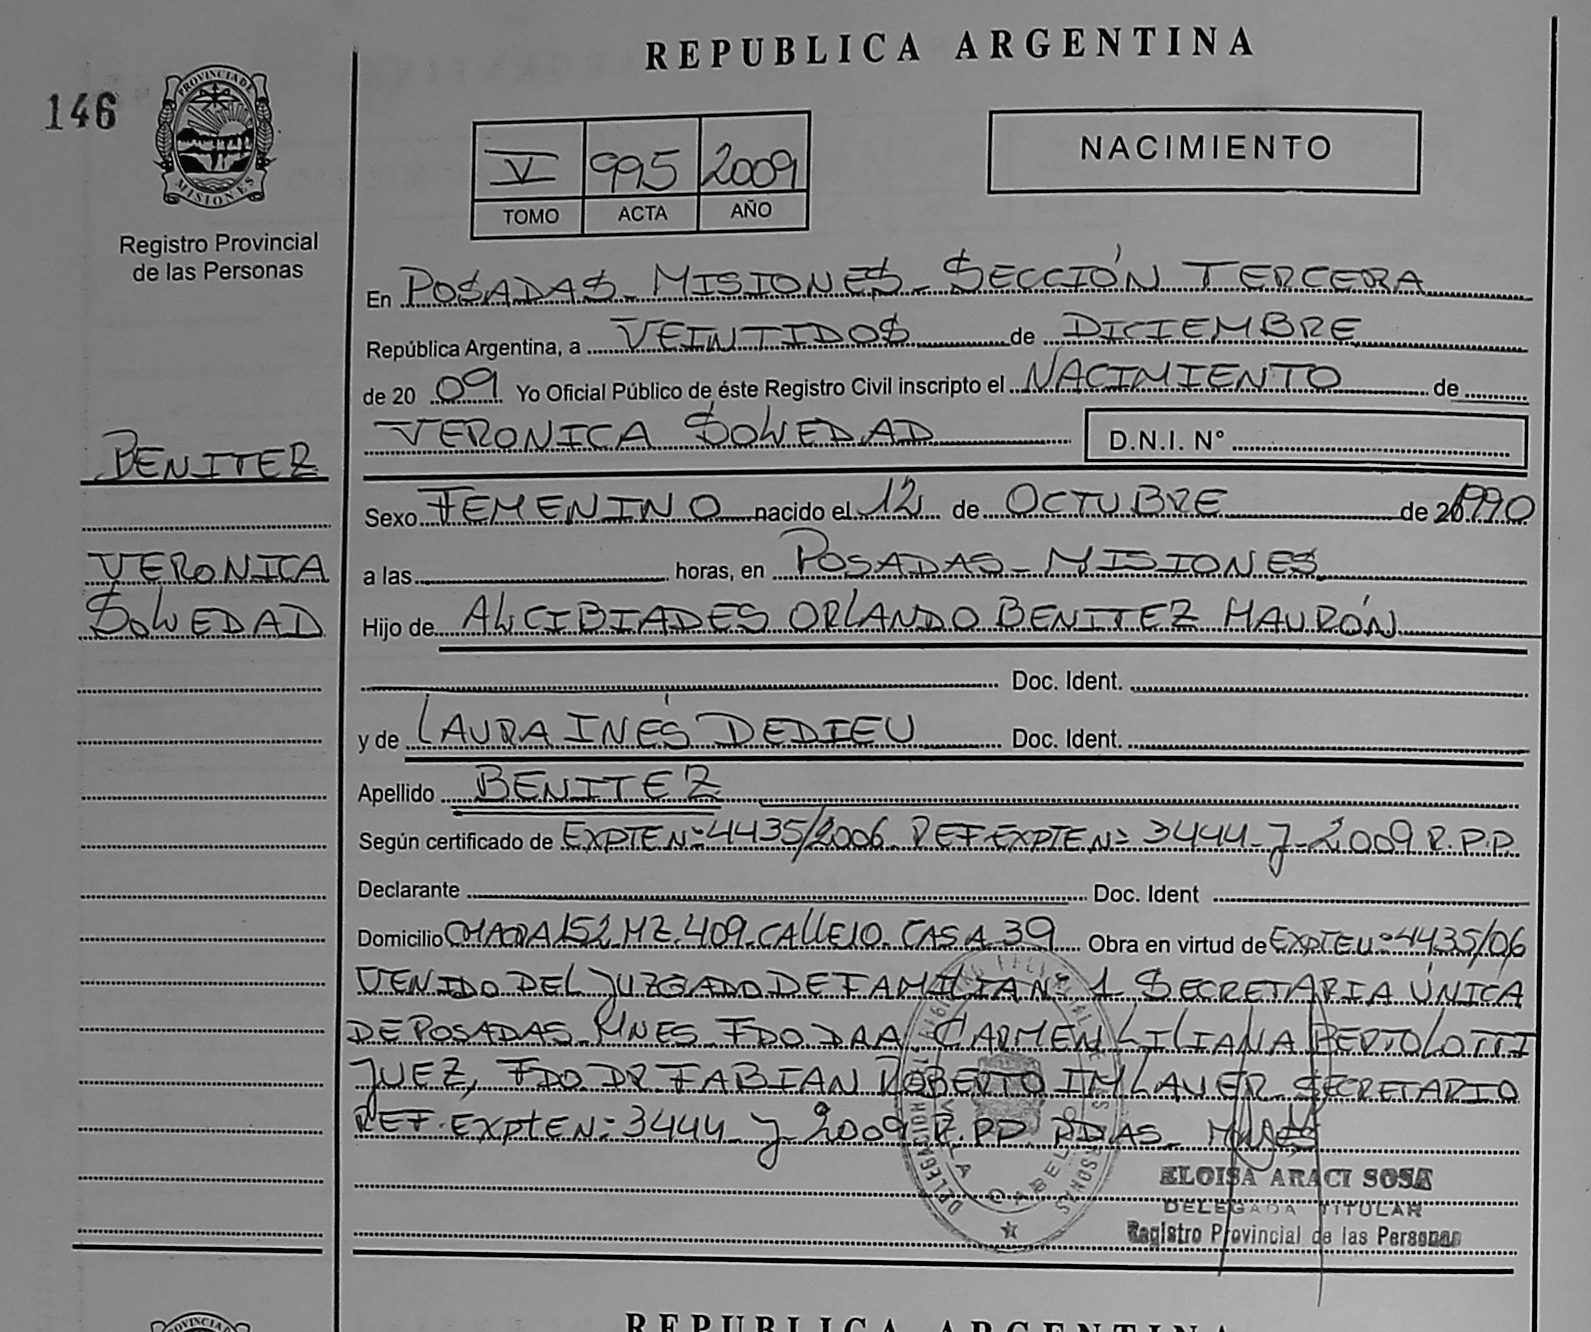 REPUBLICA ARGENTINA
146
PROVINCIA DE
MISIONES
Registro Provincial
de las Personas
V 995 2009
TOMO ACTA AÑO
NACIMIENTO
En POSADAS - MISIONES - SECCIÓN TERCERA
República Argentina, a VEINTIDOS de DICIEMBRE
de 20 09 Yo Oficial Público de éste Registro Civil inscripto el NACIMIENTO de
VERONICA SOLEDAD D.N.I. N°
BENITEZ
VERONICA
SOLEDAD
Sexo FEMENINO nacido el 12 de OCTUBRE de 1990
a las horas, en POSADAS - MISIONES
Hijo de ALCIBIADES ORLANDO BENITEZ MAURÓN
Doc. Ident.
y de LAURA INÉS DEDIEU Doc. Ident.
Apellido BENITEZ
Según certificado de EXPTE Nº 4435/2006 REF. EXPTE Nº 3444 - J - 2009 R.P.P.
Declarante Doc. Ident
Domicilio CHACRA 152 MZ. 409 - CALLE 10 - CASA 39 Obra en virtud de EXPTE Nº 4435/06
VENIDO DEL JUZGADO DE FAMILIA Nº 1 SECRETARIA ÚNICA
DE POSADAS MNES FDO DRA CARMEN LILIANA BERTOLOTTI
JUEZ, FDO DR FABIAN ROBERTO IMLAUER SECRETARIO
REF. EXPTE Nº 3444 - J - 2009 R.P.P. PDAS -
VILLA CABELLO
ELOISA ARACI SOSA
DELEGADA TITULAR
Registro Provincial de las Personas
PROVINCIA DE
REPUBLICA ARGENTINA